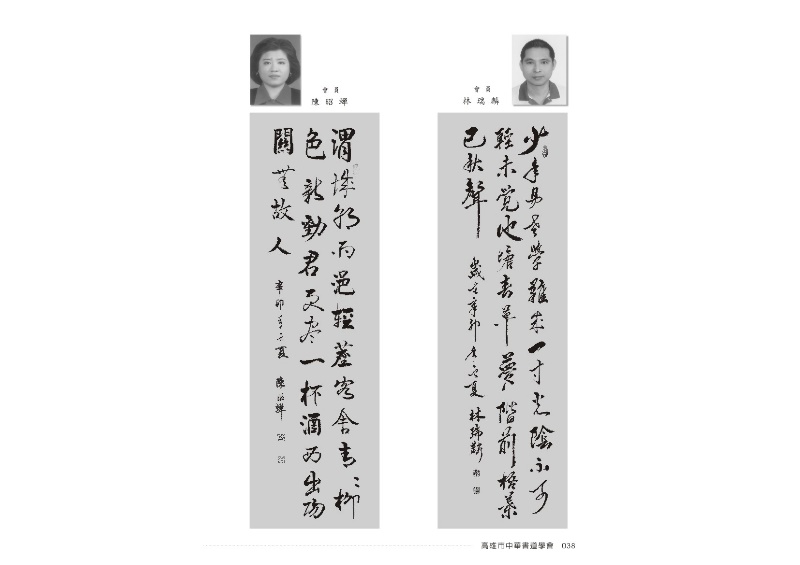 會員
林瑞
少年易老學難成一寸光陰不可
輕未覺池塘春草夢階前梧葉
已秋聲
歲在辛卯年之夏 林瑞
會員
陳昭
渭城朝雨浥輕塵客舍青々柳
色新勸君更盡一杯酒西出陽
關無故人
辛卯年之夏 陳昭
高雄市中華書道學會 038